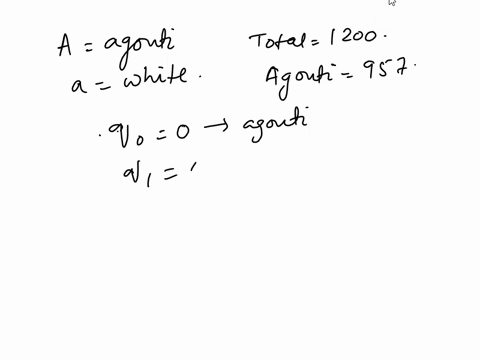 A = agouti
Total = 1200.
a = white.
Agouti = 957.
. q0 = 0 → agouti
q1 =